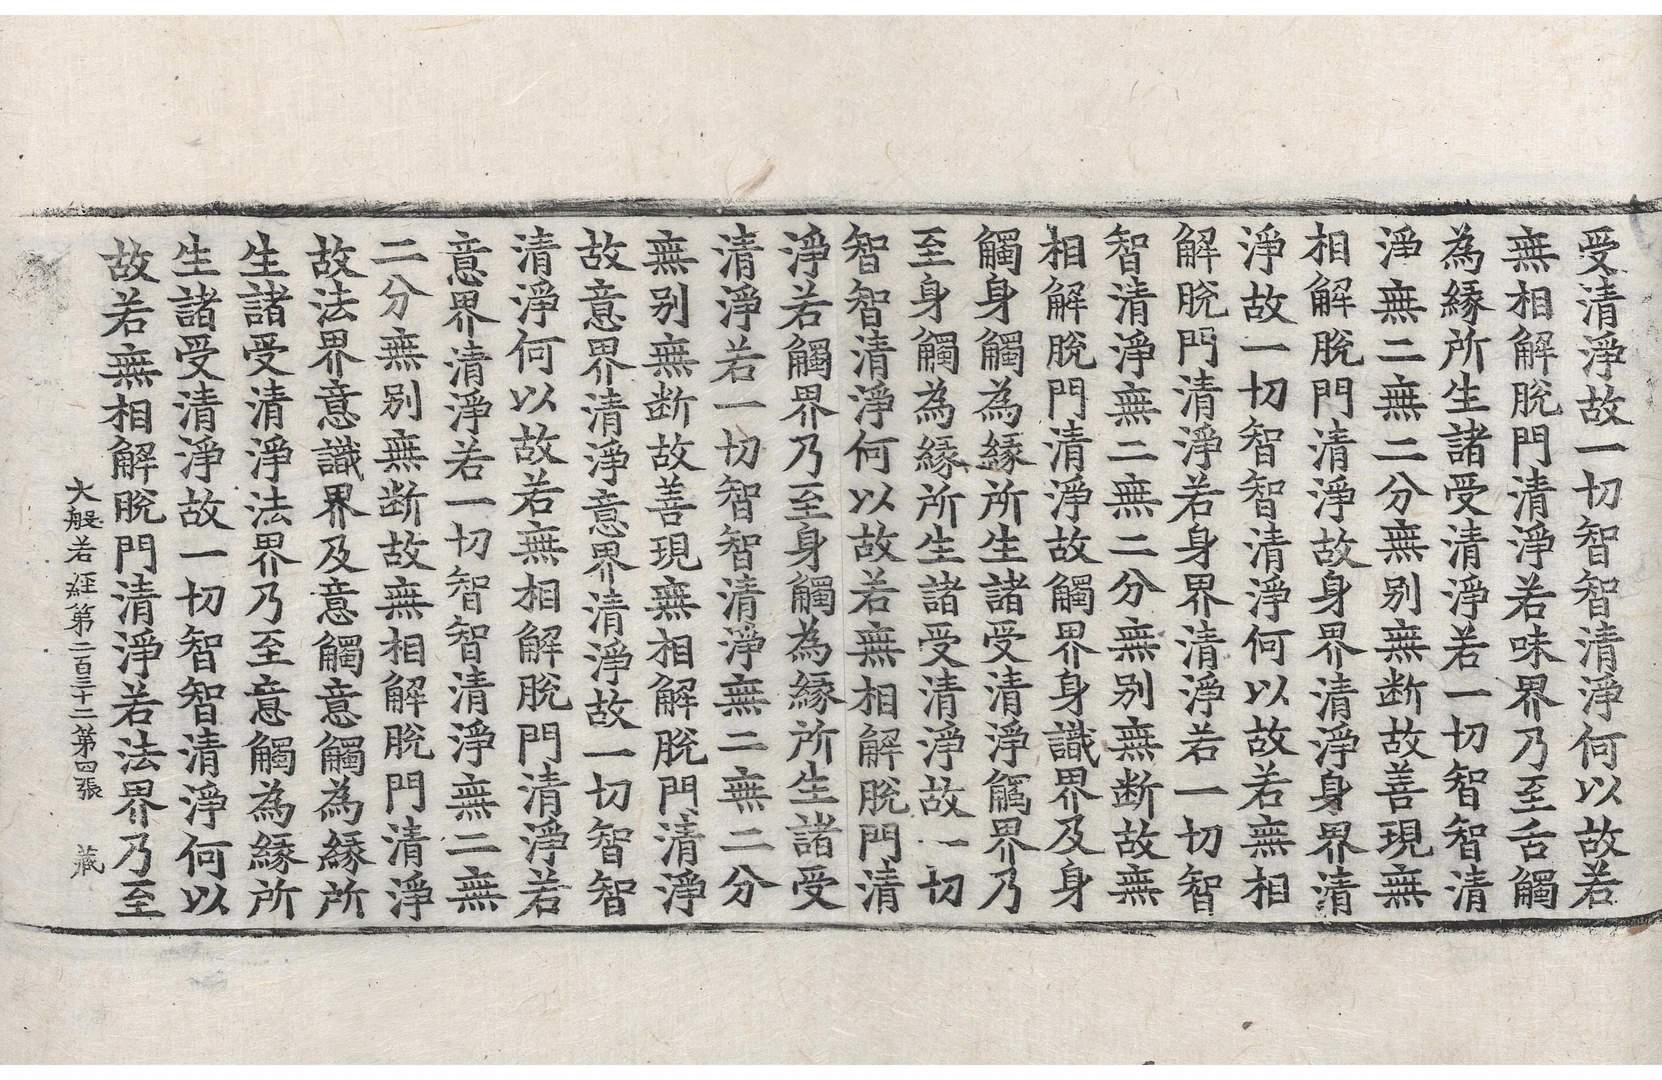 受清淨故一切智智清淨何以故若
無相解脫門清淨若味界乃至舌觸
為緣所生諸受清淨若一切智智清
淨無二無二分無別無断故善現無
相解脫門清淨故身界清淨身界清
淨故一切智智清淨何以故若無相
解脫門清淨若身界清淨若一切智
智清淨無二無二分無別無断故無
相解脫門清淨故觸界身識界及身
觸身觸為緣所生諸受清淨觸界乃
至身觸為緣所生諸受清淨故一切
智智清淨何以故若無相解脫門清
淨若觸界乃至身觸為緣所生諸受
清淨若一切智智清淨無二無二分
無別無断故善現無相解脫門清淨
故意界清淨意界清淨故一切智智
清淨何以故若無相解脫門清淨若
意界清淨若一切智智清淨無二無
二分無別無断故無相解脫門清淨
故法界意識界及意觸意觸為緣所
生諸受清淨法界乃至意觸為緣所
生諸受清淨故一切智智清淨何以
故若無相解脫門清淨若法界乃至
大般若経第二百三十二第四張 藏